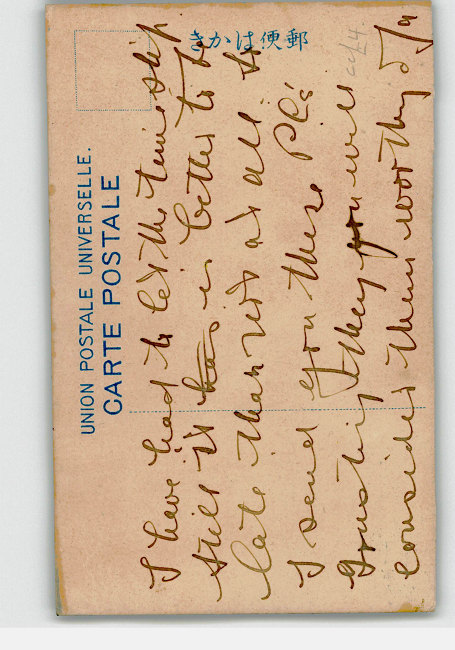 きかは便郵
UNION POSTALE UNIVERSELLE.
CARTE POSTALE
I have had to let the time slip
still it has is better to be
late than not at all. So
I send you these Pcs
trusting they you will
consider them worthy